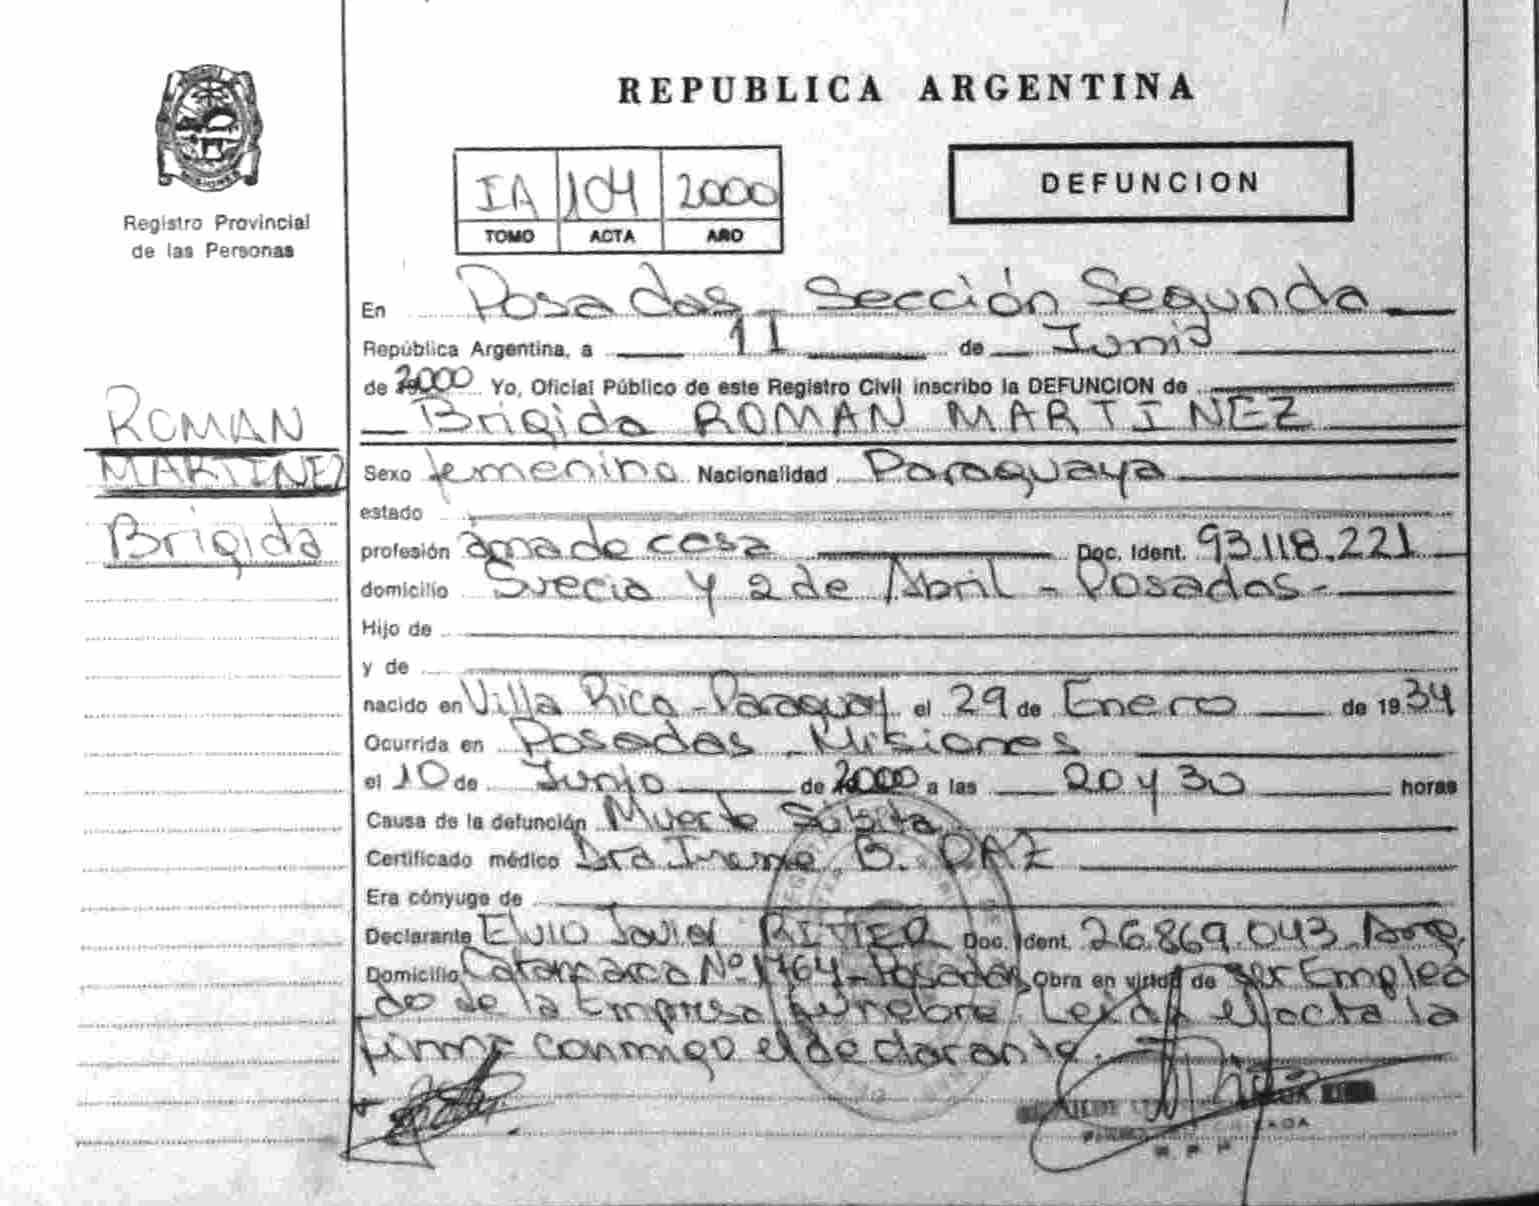 REPUBLICA ARGENTINA
IA 104 2000
TOMO ACTA AÑO
DEFUNCION
MISIONES
Registro Provincial
de las Personas
ROMAN
MARTINEZ
Brigida
En Posadas - Sección Segunda
República Argentina, a 11 de Junio
de 2000 Yo, Oficial Público de este Registro Civil inscribo la DEFUNCION de
Brigida ROMAN MARTINEZ
Sexo femenino Nacionalidad Paraguaya
estado
profesión ama de casa Doc. Ident. 93.118.221
domicilio Suecia y 2 de Abril - Posadas -
Hijo de
y de
nacido en Villa Rica - Paraguay el 29 de Enero de 1934
Ocurrida en Posadas Misiones
el 10 de Junio de 2000 a las 20 y 30 horas
Causa de la defunción Muerte Súbita
Certificado médico Dra Irene B. PAZ
Era cónyuge de
Declarante Elvio Javier RITTER Doc. Ident. 26.869.043 Arg.
Domicilio Catamarca Nº 1764 - Posadas Obra en virtud de ser Emplea
do de la Empresa fúnebre. Leída el acta la
firma conmigo el declarante.